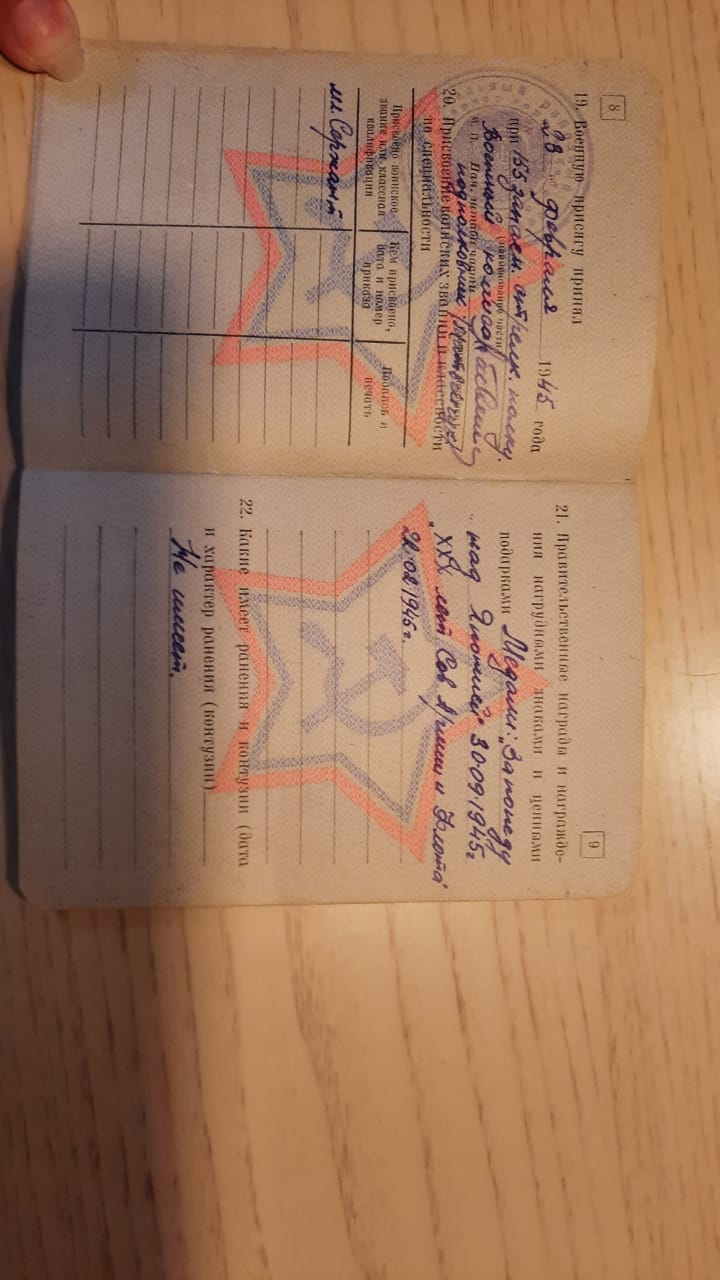 8
19. Военную присягу принял
"23" февраля 1945 года
при 155 запасн. стрелк. полку.
(наименование части)
Военный комиссар
М. П. Нач. штаба части
подполковник
20. Присвоение воинских званий и классности
по специальности
Присвоено воинское звание или классная квалификация
Кем присвоено, дата и номер приказа
Подпись и печать
мл. Сержант
9
21. Правительственные награды и награжде-
ния нагрудными знаками и ценными
подарками Медали: „За победу
над Японией" 30.09.1945г
„XXX лет Сов Армии и Флота"
22.02.1945г.
22. Какие имеет ранения и контузии (дата
и характер ранения (контузии)
Не имеет.